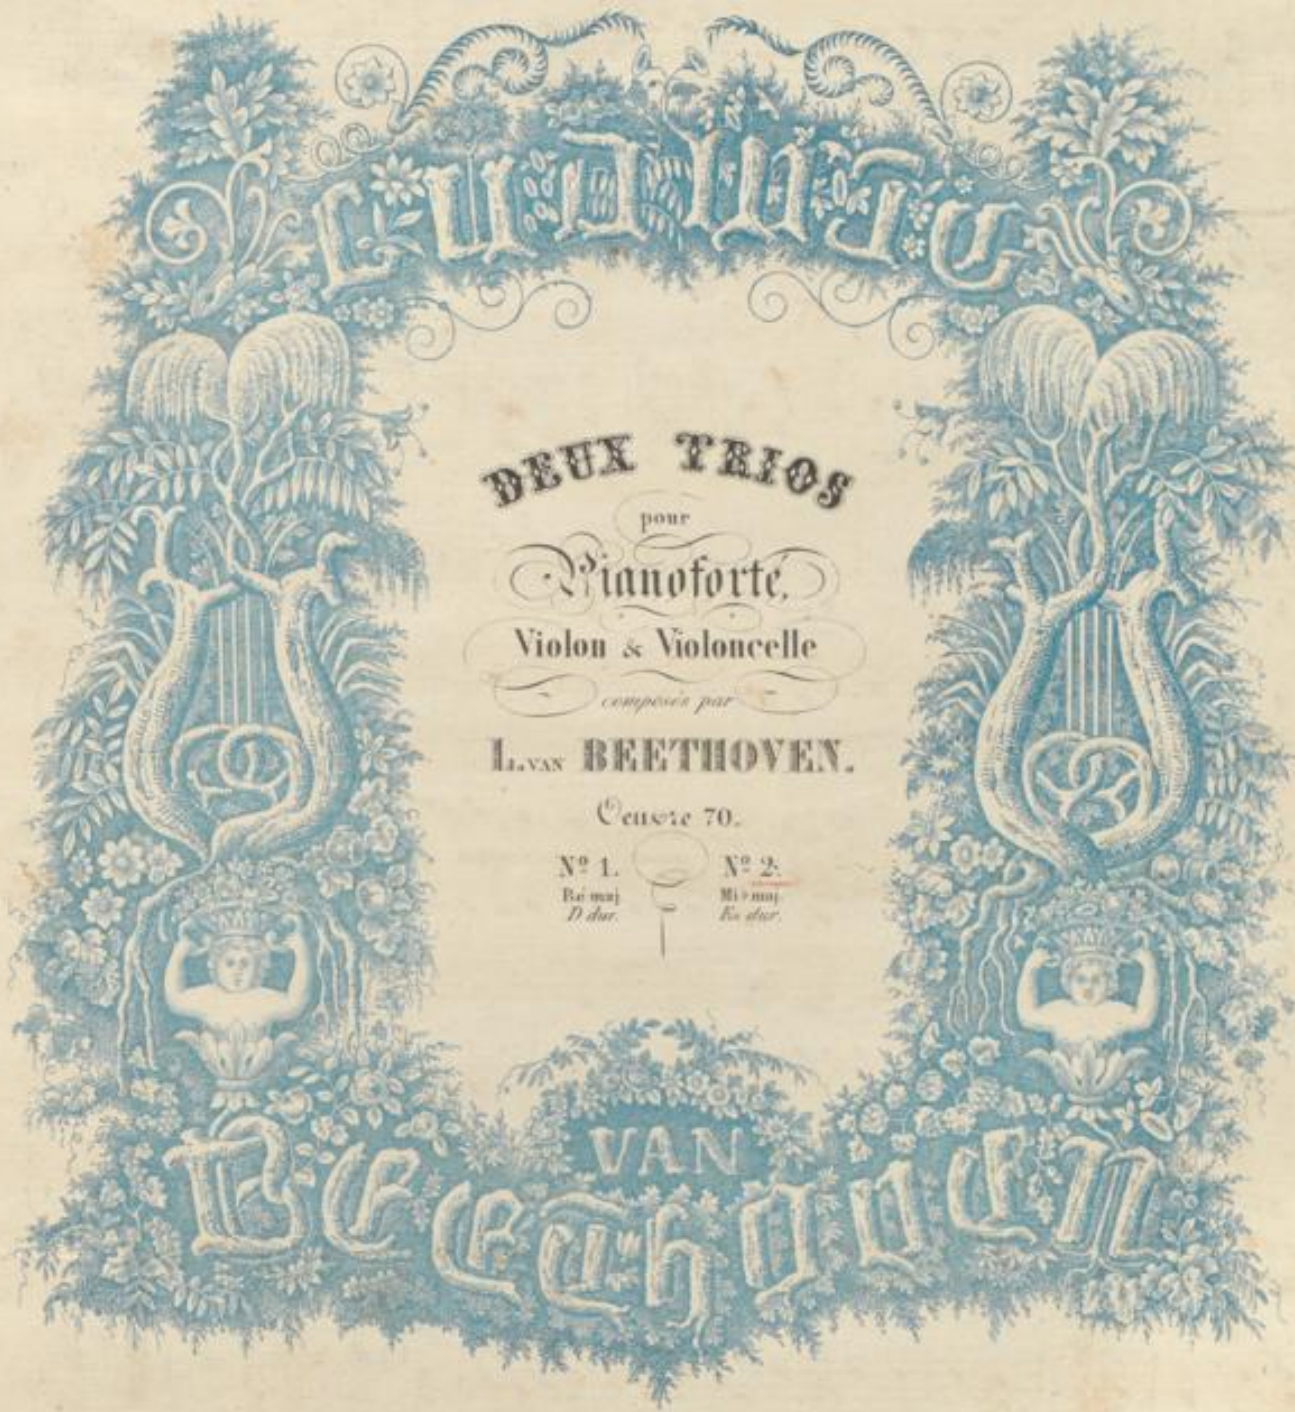 LUDWIG
DEUX TRIOS
pour
Pianoforte,
Violon & Violoncelle
composés par
L. VAN BEETHOVEN.
Oeuvre 70.
Nº 1. Nº 2.
Ré maj Mi♭maj
D dur. Es dur.
VAN
Beethoven